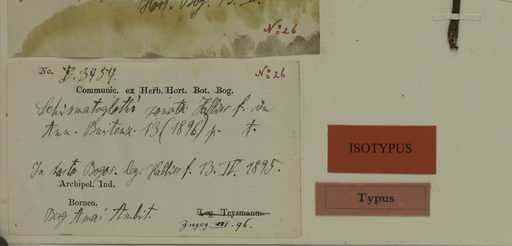 Hort. Bog. B.
No 26
No. B. 3959. No 26
Communic. ex Herb. Hort. Bot. Bog.
Schismatoglottis zonata Hallier f. in
Ann. Buitenz. 13 (1896) p. t.
In horto Bogor. leg. Hallier f. 13. IV. 1895.
Archipel. Ind.
Borneo.
Berg Amai Ambit. Leg. Teysmann.
96.
ISOTYPUS
Typus